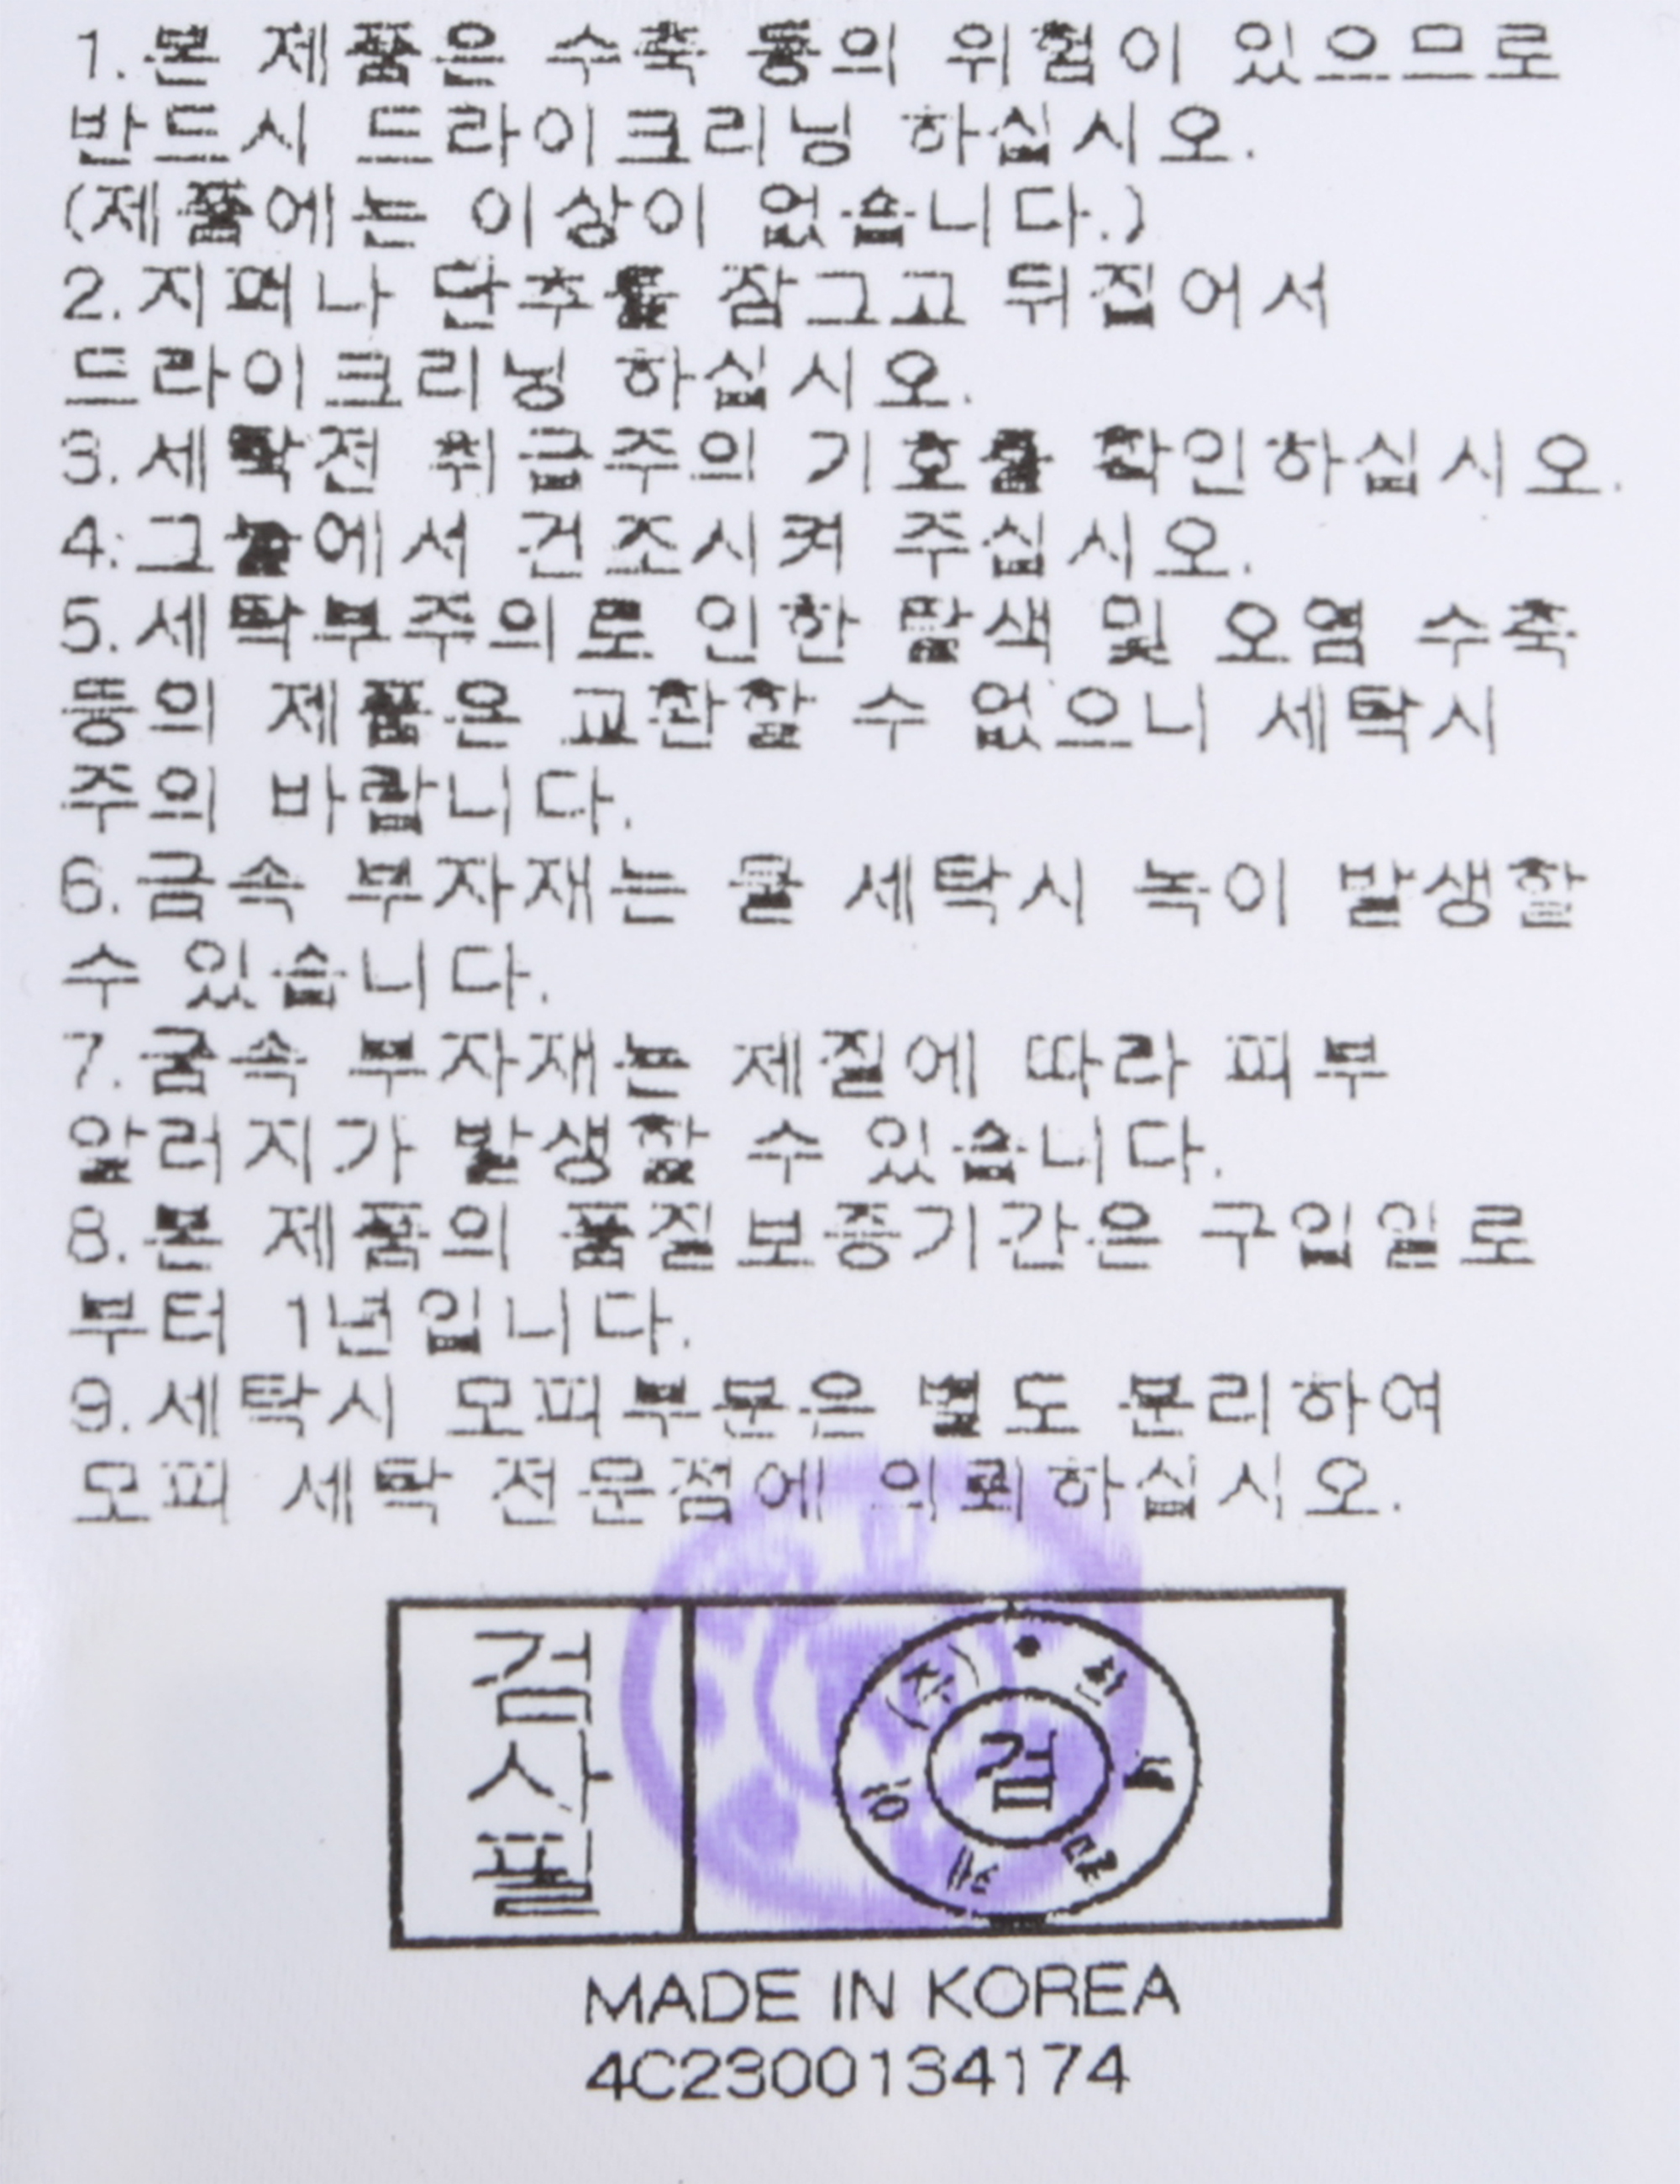 1.본 제품은 수축 등의 위험이 있으므로
반드시 드라이크리닝 하십시오.
(제품에는 이상이 없습니다.)
2.지퍼나 단추를 잠그고 뒤집어서
드라이크리닝 하십시오.
3.세탁전 취급주의 기호를 확인하십시오.
4.그늘에서 건조시켜 주십시오.
5.세탁부주의로 인한 탈색 및 오염 수축
등의 제품은 교환할 수 없으니 세탁시
주의 바랍니다.
6.금속 부자재는 물 세탁시 녹이 발생할
수 있습니다.
7.금속 부자재는 제질에 따라 피부
알러지가 발생할 수 있습니다.
8.본 제품의 품질보증기간은 구입일로
부터 1년입니다.
9.세탁시 모피부분은 별도 분리하여
모피 세탁 전문점에 의뢰하십시오.
검사필
검
MADE IN KOREA
4C2300134174